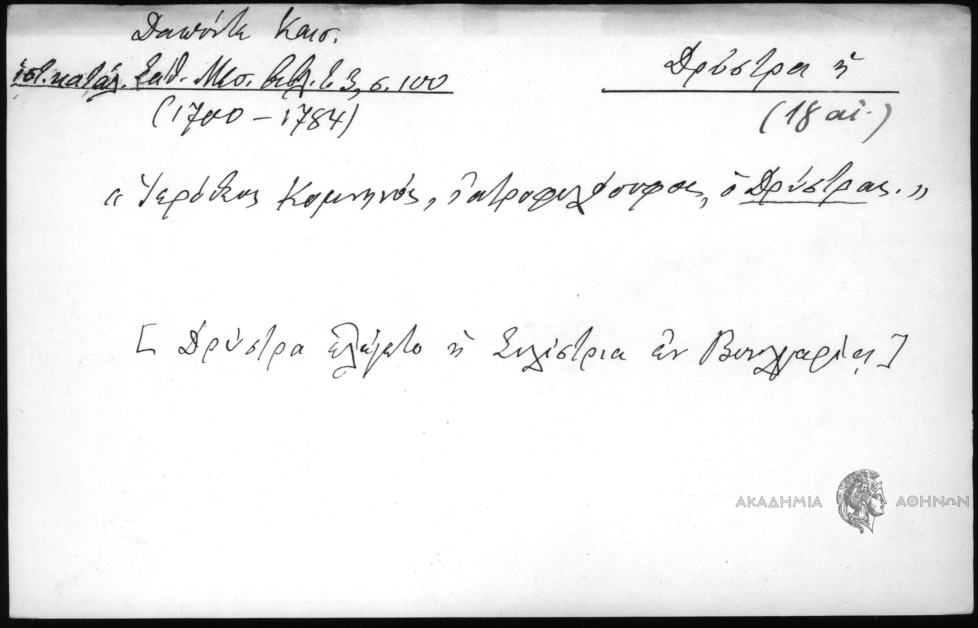 Δαπόντε Καισ.
ἱστ. κατάλ. Σάθ. Μεσ. Βιβλ. τ. 3, σ. 100
(1700 – 1784)
Δρύστρα ἡ
(18 αἰ.)
« Ἱερόθεος Κομνηνός, ἰατροφιλόσοφος, ὁ Δρύστρας. »
[ Δρύστρα ἐλέγετο ἡ Σιλίστρια ἐν Βουλγαρίᾳ ]
ΑΚΑΔΗΜΙΑ ΑΘΗΝΩΝ